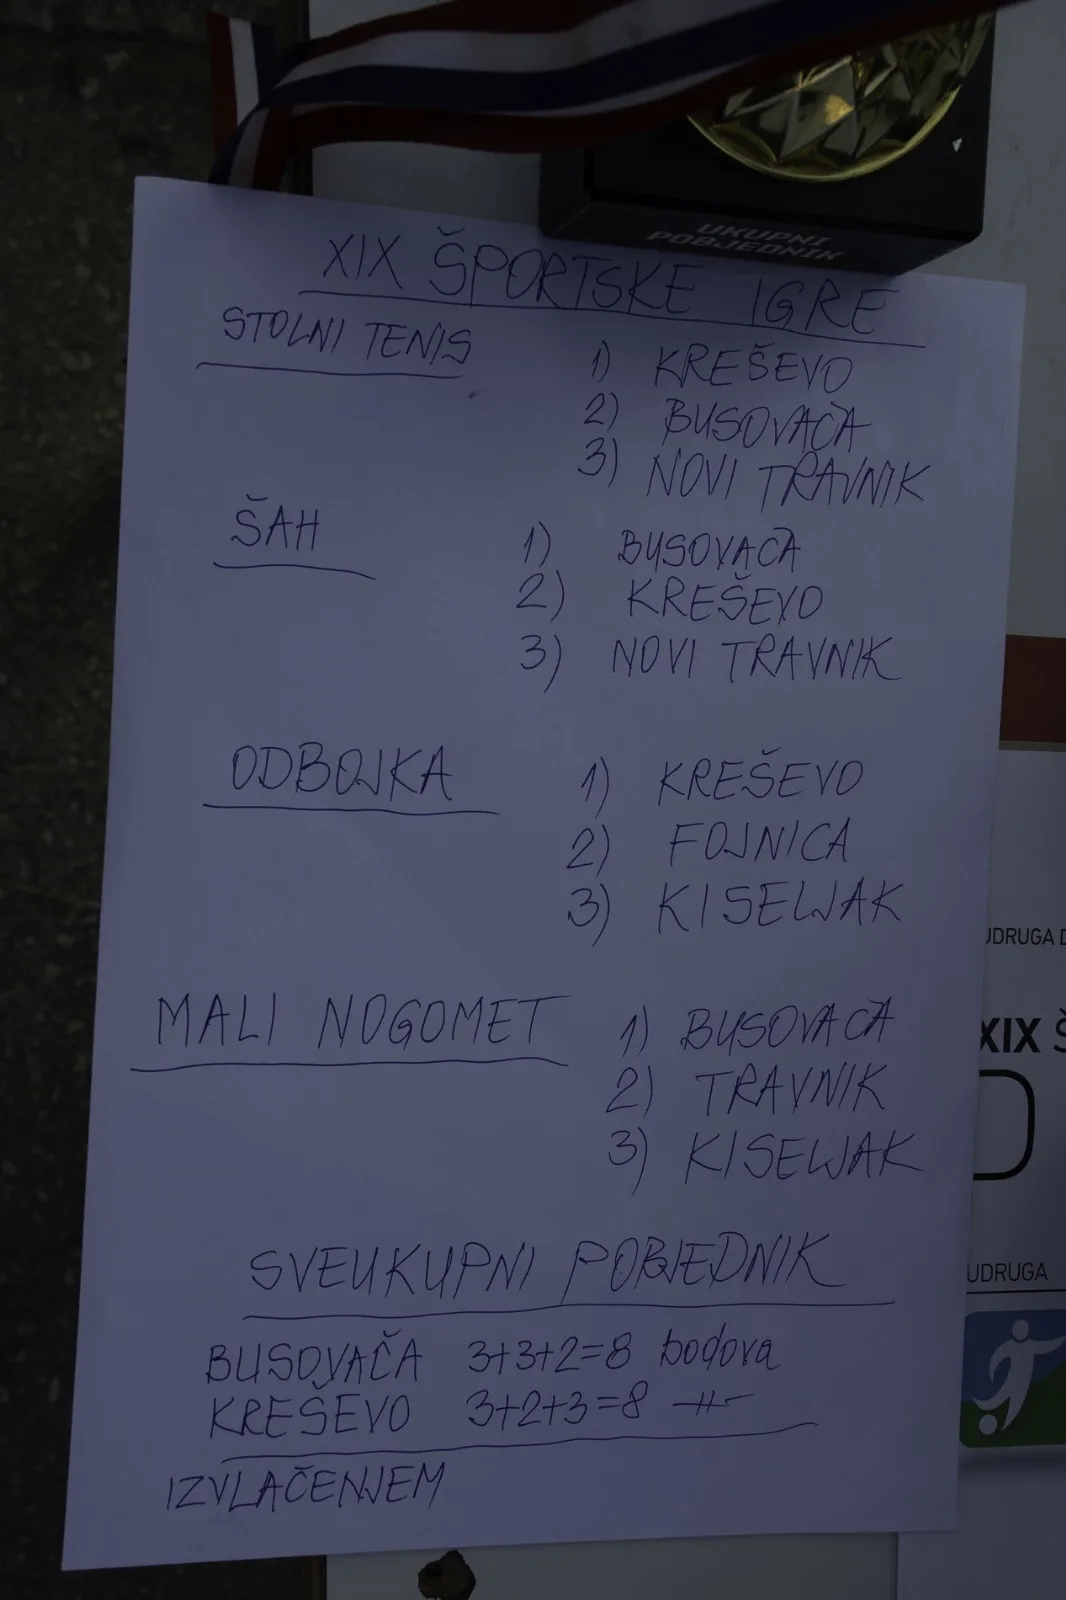 UKUPNI
POBJEDNIK
XIX ŠPORTSKE IGRE
STOLNI TENIS
1) KREŠEVO
2) BUSOVAČA
3) NOVI TRAVNIK
ŠAH
1) BUSOVAČA
2) KREŠEVO
3) NOVI TRAVNIK
ODBOJKA
1) KREŠEVO
2) FOJNICA
3) KISELJAK
MALI NOGOMET
1) BUSOVAČA
2) TRAVNIK
3) KISELJAK
SVEUKUPNI POBJEDNIK
BUSOVAČA 3+3+2=8 bodova
KREŠEVO 3+2+3=8 -||-
IZVLAČENJEM
UDRUGA D
XIX Š
UDRUGA